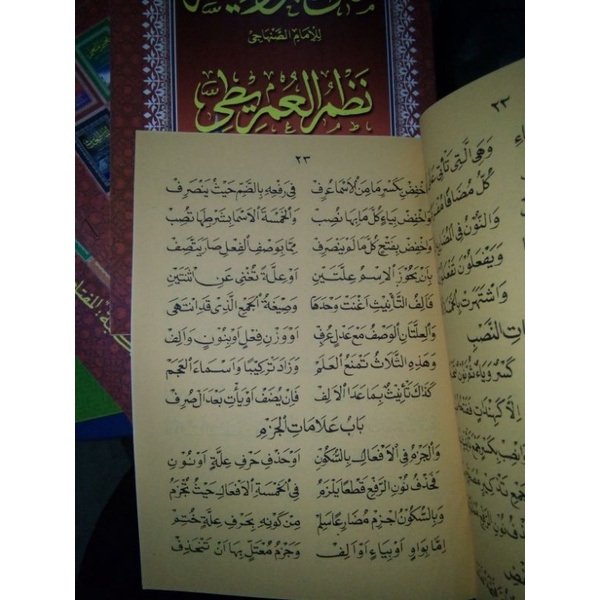 للإمام الصنهاجي
نظم العمريطي
٢٣
وَاخْفِضْ بِكَسْرٍ مَا مِنَ الْاَسْمَا عُرِفْ فِي رَفْعِهِ بِالضَّمِّ حَيْثُ يَنْصَرِفْ
وَاخْفِضْ بِيَاءٍ كُلَّ مَا بِهَا نُصِبْ وَالْخَمْسَةَ الْاَسْمَا بِشَرْطِهَا تُصِبْ
وَاخْفِضْ بِفَتْحٍ كُلَّ مَا لَمْ يَنْصَرِفْ مِمَّا بِوَصْفِ الْفِعْلِ صَارَ يَتَّصِفْ
بِاَنْ يَحُوْزَ الْاِسْمُ عِلَّتَيْنِ اَوْ عِلَّةً تُغْنِي عَنِ اثْنَتَيْنِ
فَاَلِفُ التَّأْنِيْثِ اَغْنَتْ وَحْدَهَا وَصِيْغَةُ الْجَمْعِ الَّذِي قَدِ انْتَهَى
وَالْعِلَّتَانِ الْوَصْفُ مَعْ عَدْلٍ عُرِفْ اَوْ وَزْنِ فِعْلٍ اَوْ بِنُوْنٍ وَاَلِفْ
وَهٰذِهِ الثَّلَاثُ تَمْنَعُ الْعَلَمْ وَزَادَ تَرْكِيْبًا وَاَسْمَاءَ الْعَجَمْ
كَذَاكَ تَأْنِيْثٌ بِمَا عَدَا الْاَلِفْ فَاِنْ يُضَفْ اَوْ يَأْتِ بَعْدَ اَلْ صُرِفْ
بَابُ عَلَامَاتِ الْجَزْمِ
وَالْجَزْمُ فِي الْاَفْعَالِ بِالسُّكُوْنِ اَوْ حَذْفِ حَرْفِ عِلَّةٍ اَوْ نُوْنِ
فَحَذْفُ نُوْنِ الرَّفْعِ قَطْعًا يَلْزَمُ فِي الْخَمْسَةِ الْاَفْعَالِ حَيْثُ تُجْزَمُ
وَبِالسُّكُوْنِ اجْزِمْ مُضَارِعًا سَلِمْ مِنْ كَوْنِهِ بِحَرْفِ عِلَّةٍ خُتِمْ
اِمَّا بِوَاوٍ اَوْ بِيَاءٍ اَوْ اَلِفْ وَجَزْمُ مُعْتَلٍّ بِهَا اَنْ تَنْحَذِفْ
٢٣
وَهِيَ الَّتِي تَأْتِي
كُلُّ مُضَافًا
وَالنُّوْنُ فِي
وَيَفْعَلُوْنَ
وَاشْتَهَرَتْ
اتِ النَّصْبِ
كَسْرٌ وَيَاءٌ ثُمَّ نُوْنٌ